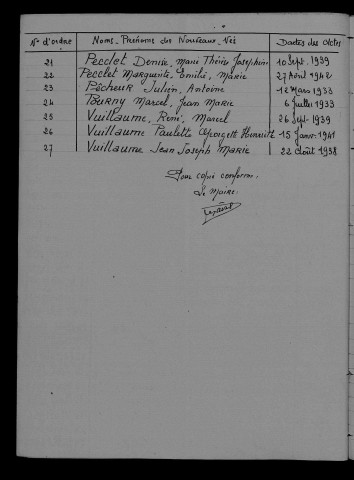 N° d'ordre Noms - Prénoms des Nouveaux-Nés Dates des Actes
21 Pecclet Denise, Marie Thérèse Joséphine 10 Sept. 1939
22 Pecclet Marguerite, Emilie, Marie 27 Avril 1942
23 Pêcheur Julien, Antoine 12 Mars 1933
24 Pourny Marcel, Jean Marie 6 Juillet 1933
25 Vuillaume, René, Marcel 26 Sept. 1939
26 Vuillaume Paulette Georgette Henriette 15 Janv. 1941
27 Vuillaume Jean Joseph Marie 22 Août 1938
Pour copie conforme.
Le Maire: